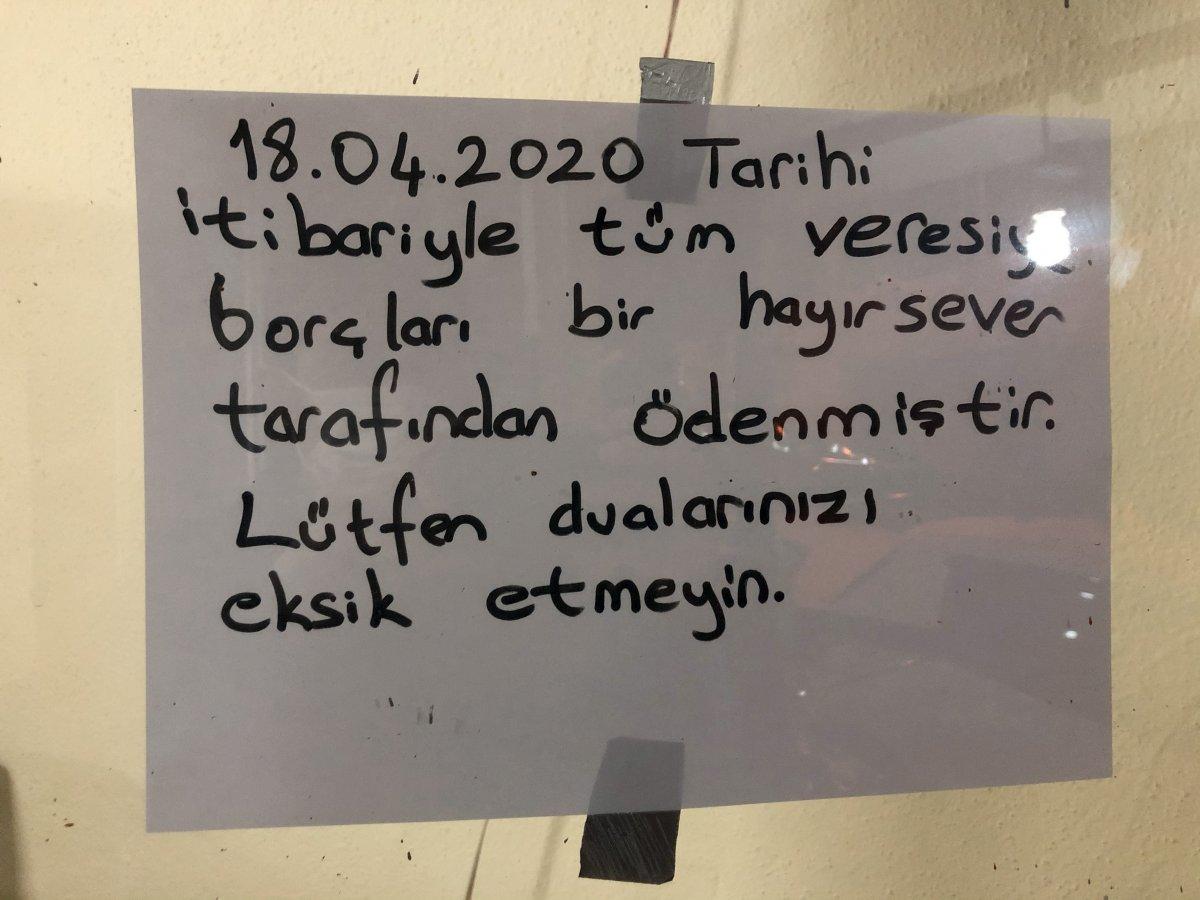 18.04.2020 Tarihi
itibariyle tüm veresiye
borçları bir hayırsever
tarafından ödenmiştir.
Lütfen dualarınızı
eksik etmeyin.